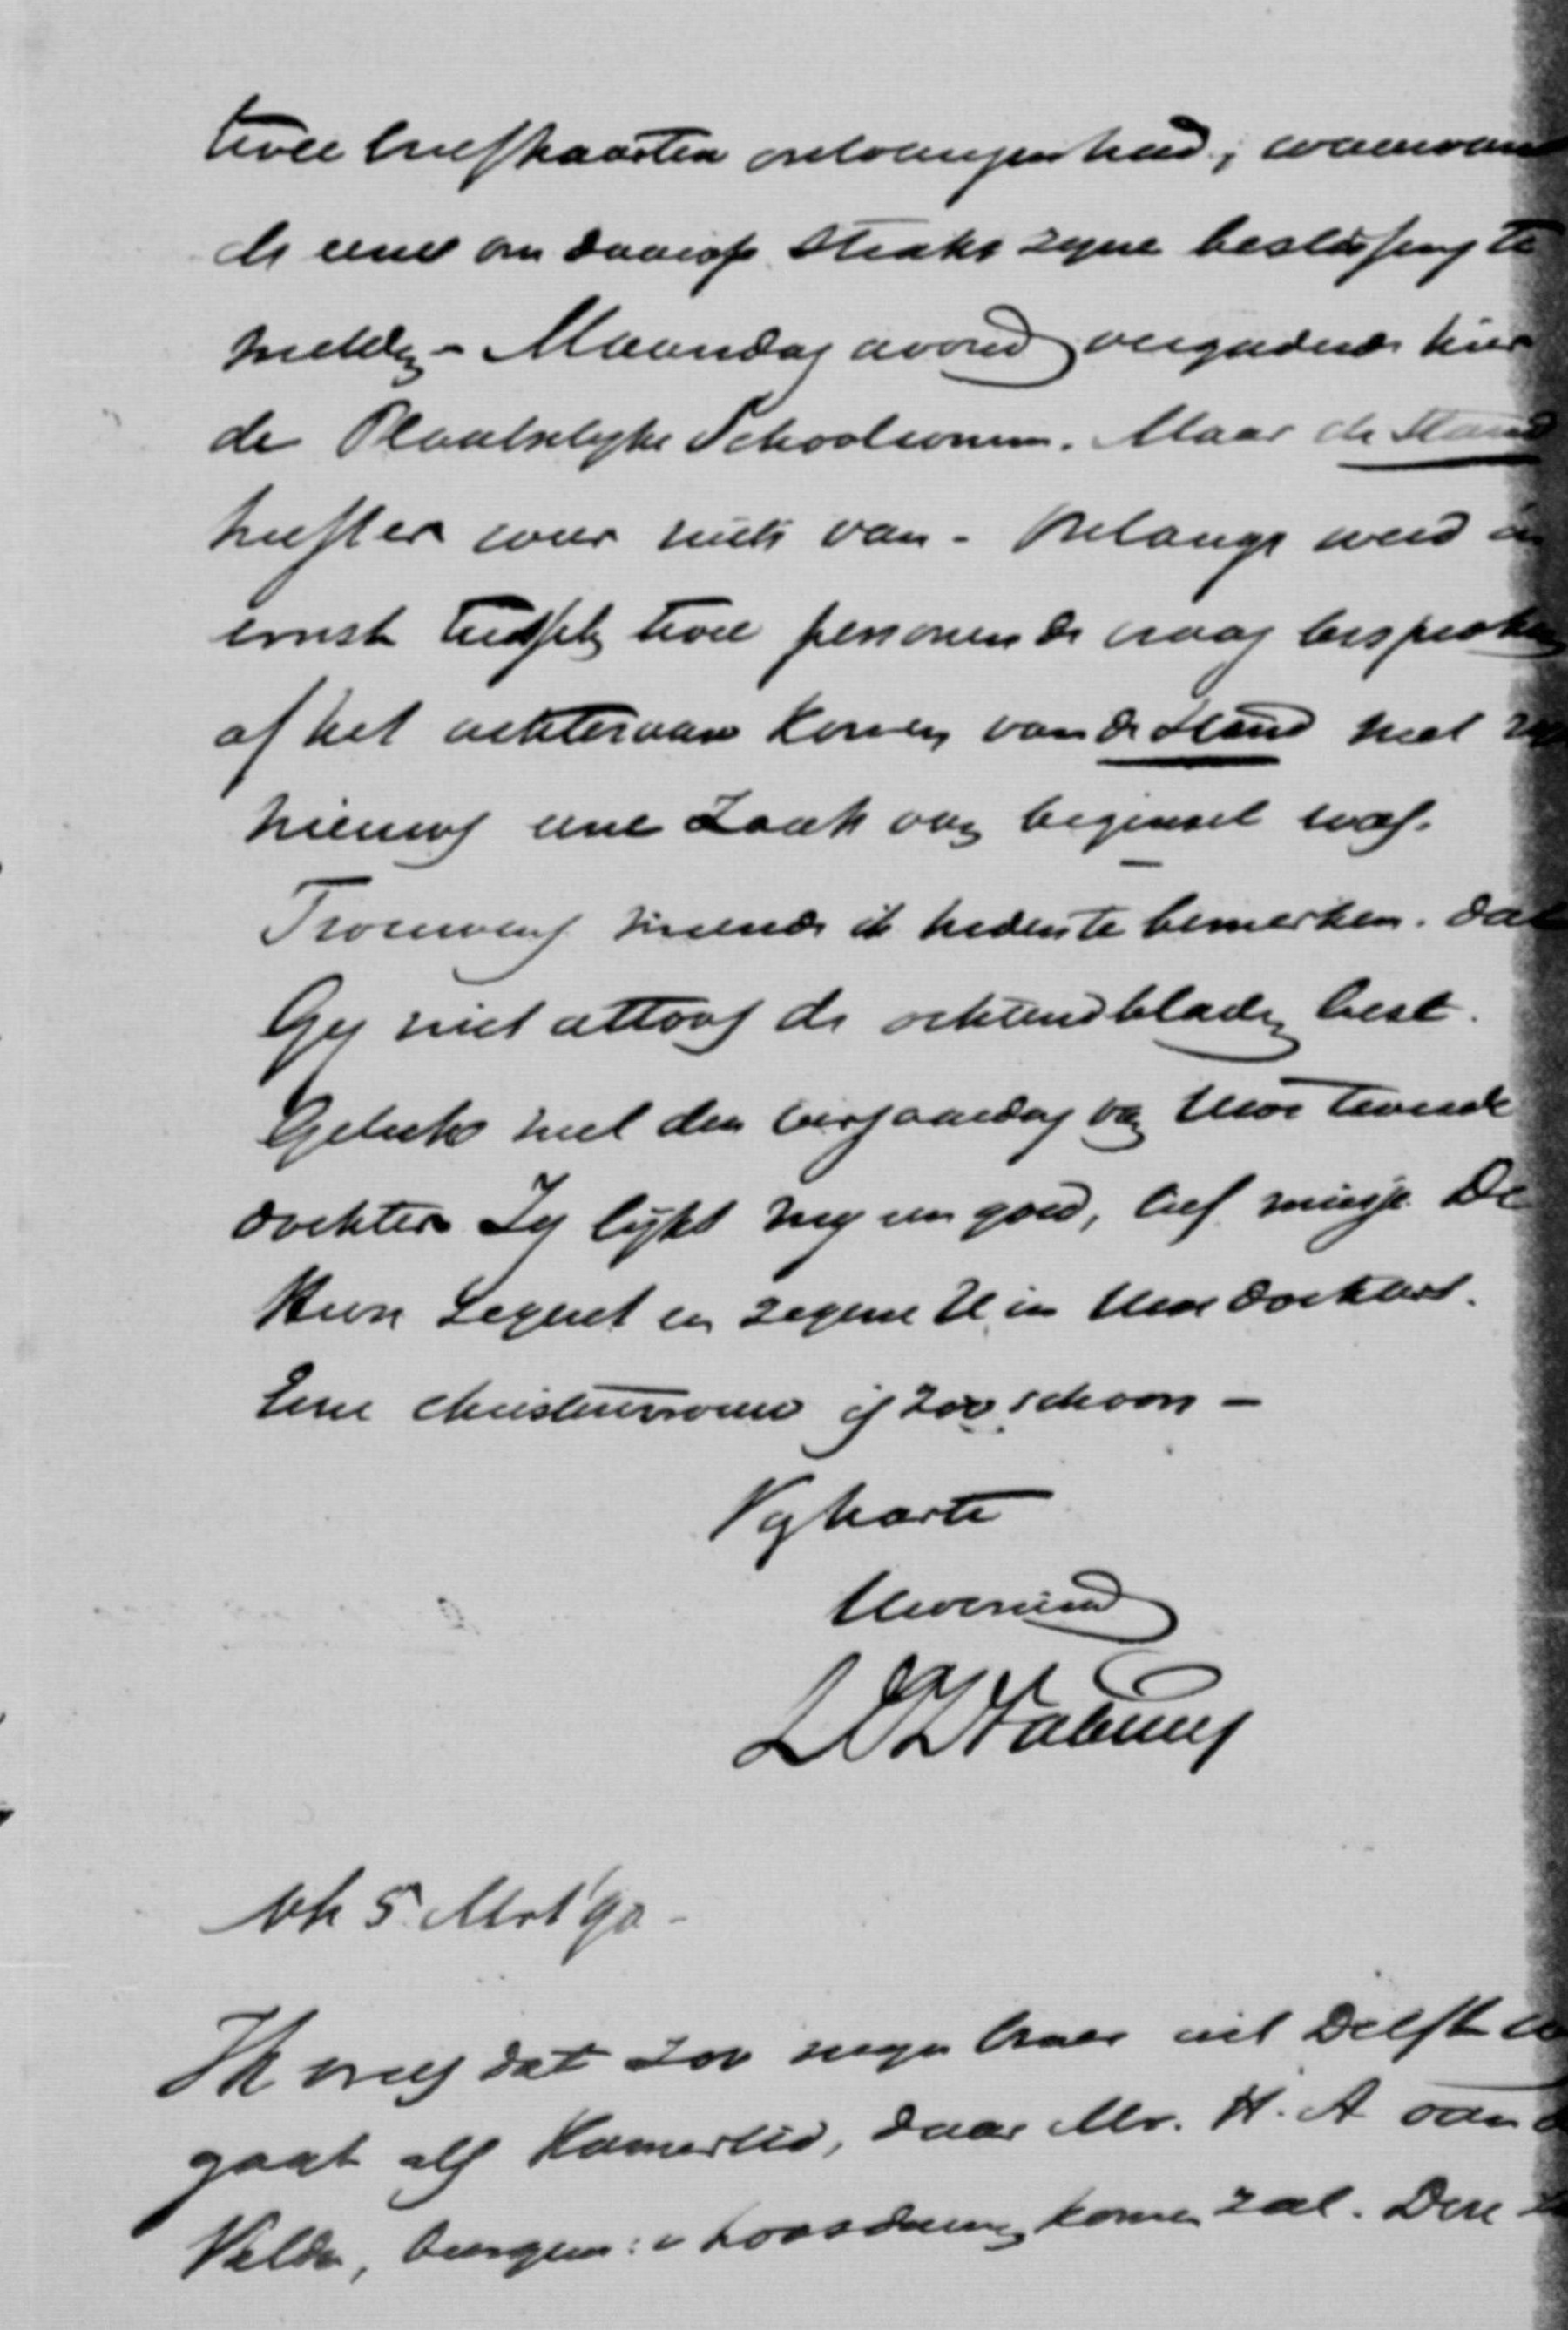 twee briefkaarten ontvangen had, waarvan
de eene om daarop straks zijne beslissing te
melden - Maandag avond vergaderde hier
de Plaatselijke Schoolcomm. Maar de Stand
heeft er weer niets van - Onlangs werd in
ernst tusschen twee personen de vraag besproken
of het achteraan komen van de Stand met
nieuws eene zaak van beginsel was.
Trouwens meende ik reeds te bemerken. dat
Gij niet altoos de ochtendbladen leest.
Geluk met den verjaardag van Uwe tweede
dochter. Zij lijkt mij een goed, lief meisje. De
Heere zegene haar en zegene U in Uwe dochters.
Eene christenvrouw is zoo schoon -
Van harte
Uw vriend
Mrt '90 -
Ik vrees dat zoo mijn broer uit Delft
gaat als Kamerlid, daar Mr. H. A van
Velde, burgem: v Loosduinen komen zal. Deze